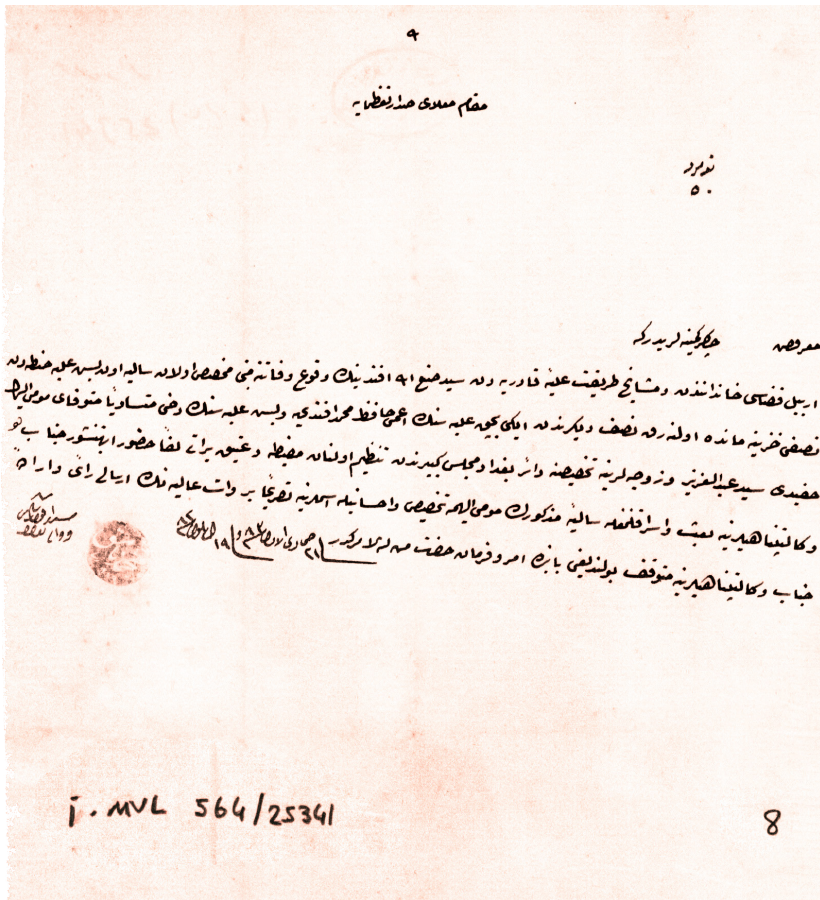 ٩
مقام معلای صدارتعظمایه
نومرو
٥٠
معروض چاکر کمینه لریدر که
اربیل قضاسی خاندانندن ومشایخ طریقت علیهٔ قادریه دن سید افندینك وقوع وفاتنه مبنی مخصص اولان سالیه اون بش علیه حنطه دن
نصفی خزینه مانده اوله رق نصف دیکرندن ایکی بچق علیه سنك اعمی حافظ محمد افندی وبش علیه سنك دخی متساویاً متوفای مومی الیهك
حفیدی سید عبدالعزیز وزوجه لرینه تخصیصنه دائر بغداد مجلس کبیرندن تنظیم اولنان مضبطه وعتیق براتی لفاً حضور جناب
وکالتپناهیلرینه بعث واسرا قلنمغله سالیهٔ مذکورك مومی الیهمه تخصیص واحسانیله اسملرینه تصریحاً بروات عالیه نك ارسالی رأی وارادهٔ
جناب وکالتپناهیلرینه متوقف بولندیغی بابنده امر وفرمان حضرت من له الامرکدر
٢١ جمادی الاول ٨٤ و ١٩ ایلول ٨٣
İ. MVL 564/25341
8